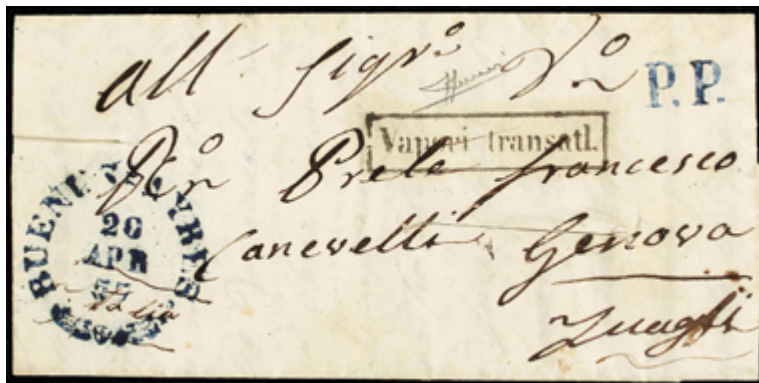 All Sigre
P.P.
Vapori transatl.
Prete Francesco
Canevelli Genova
Zuagli
BUENOS AYRES
APR